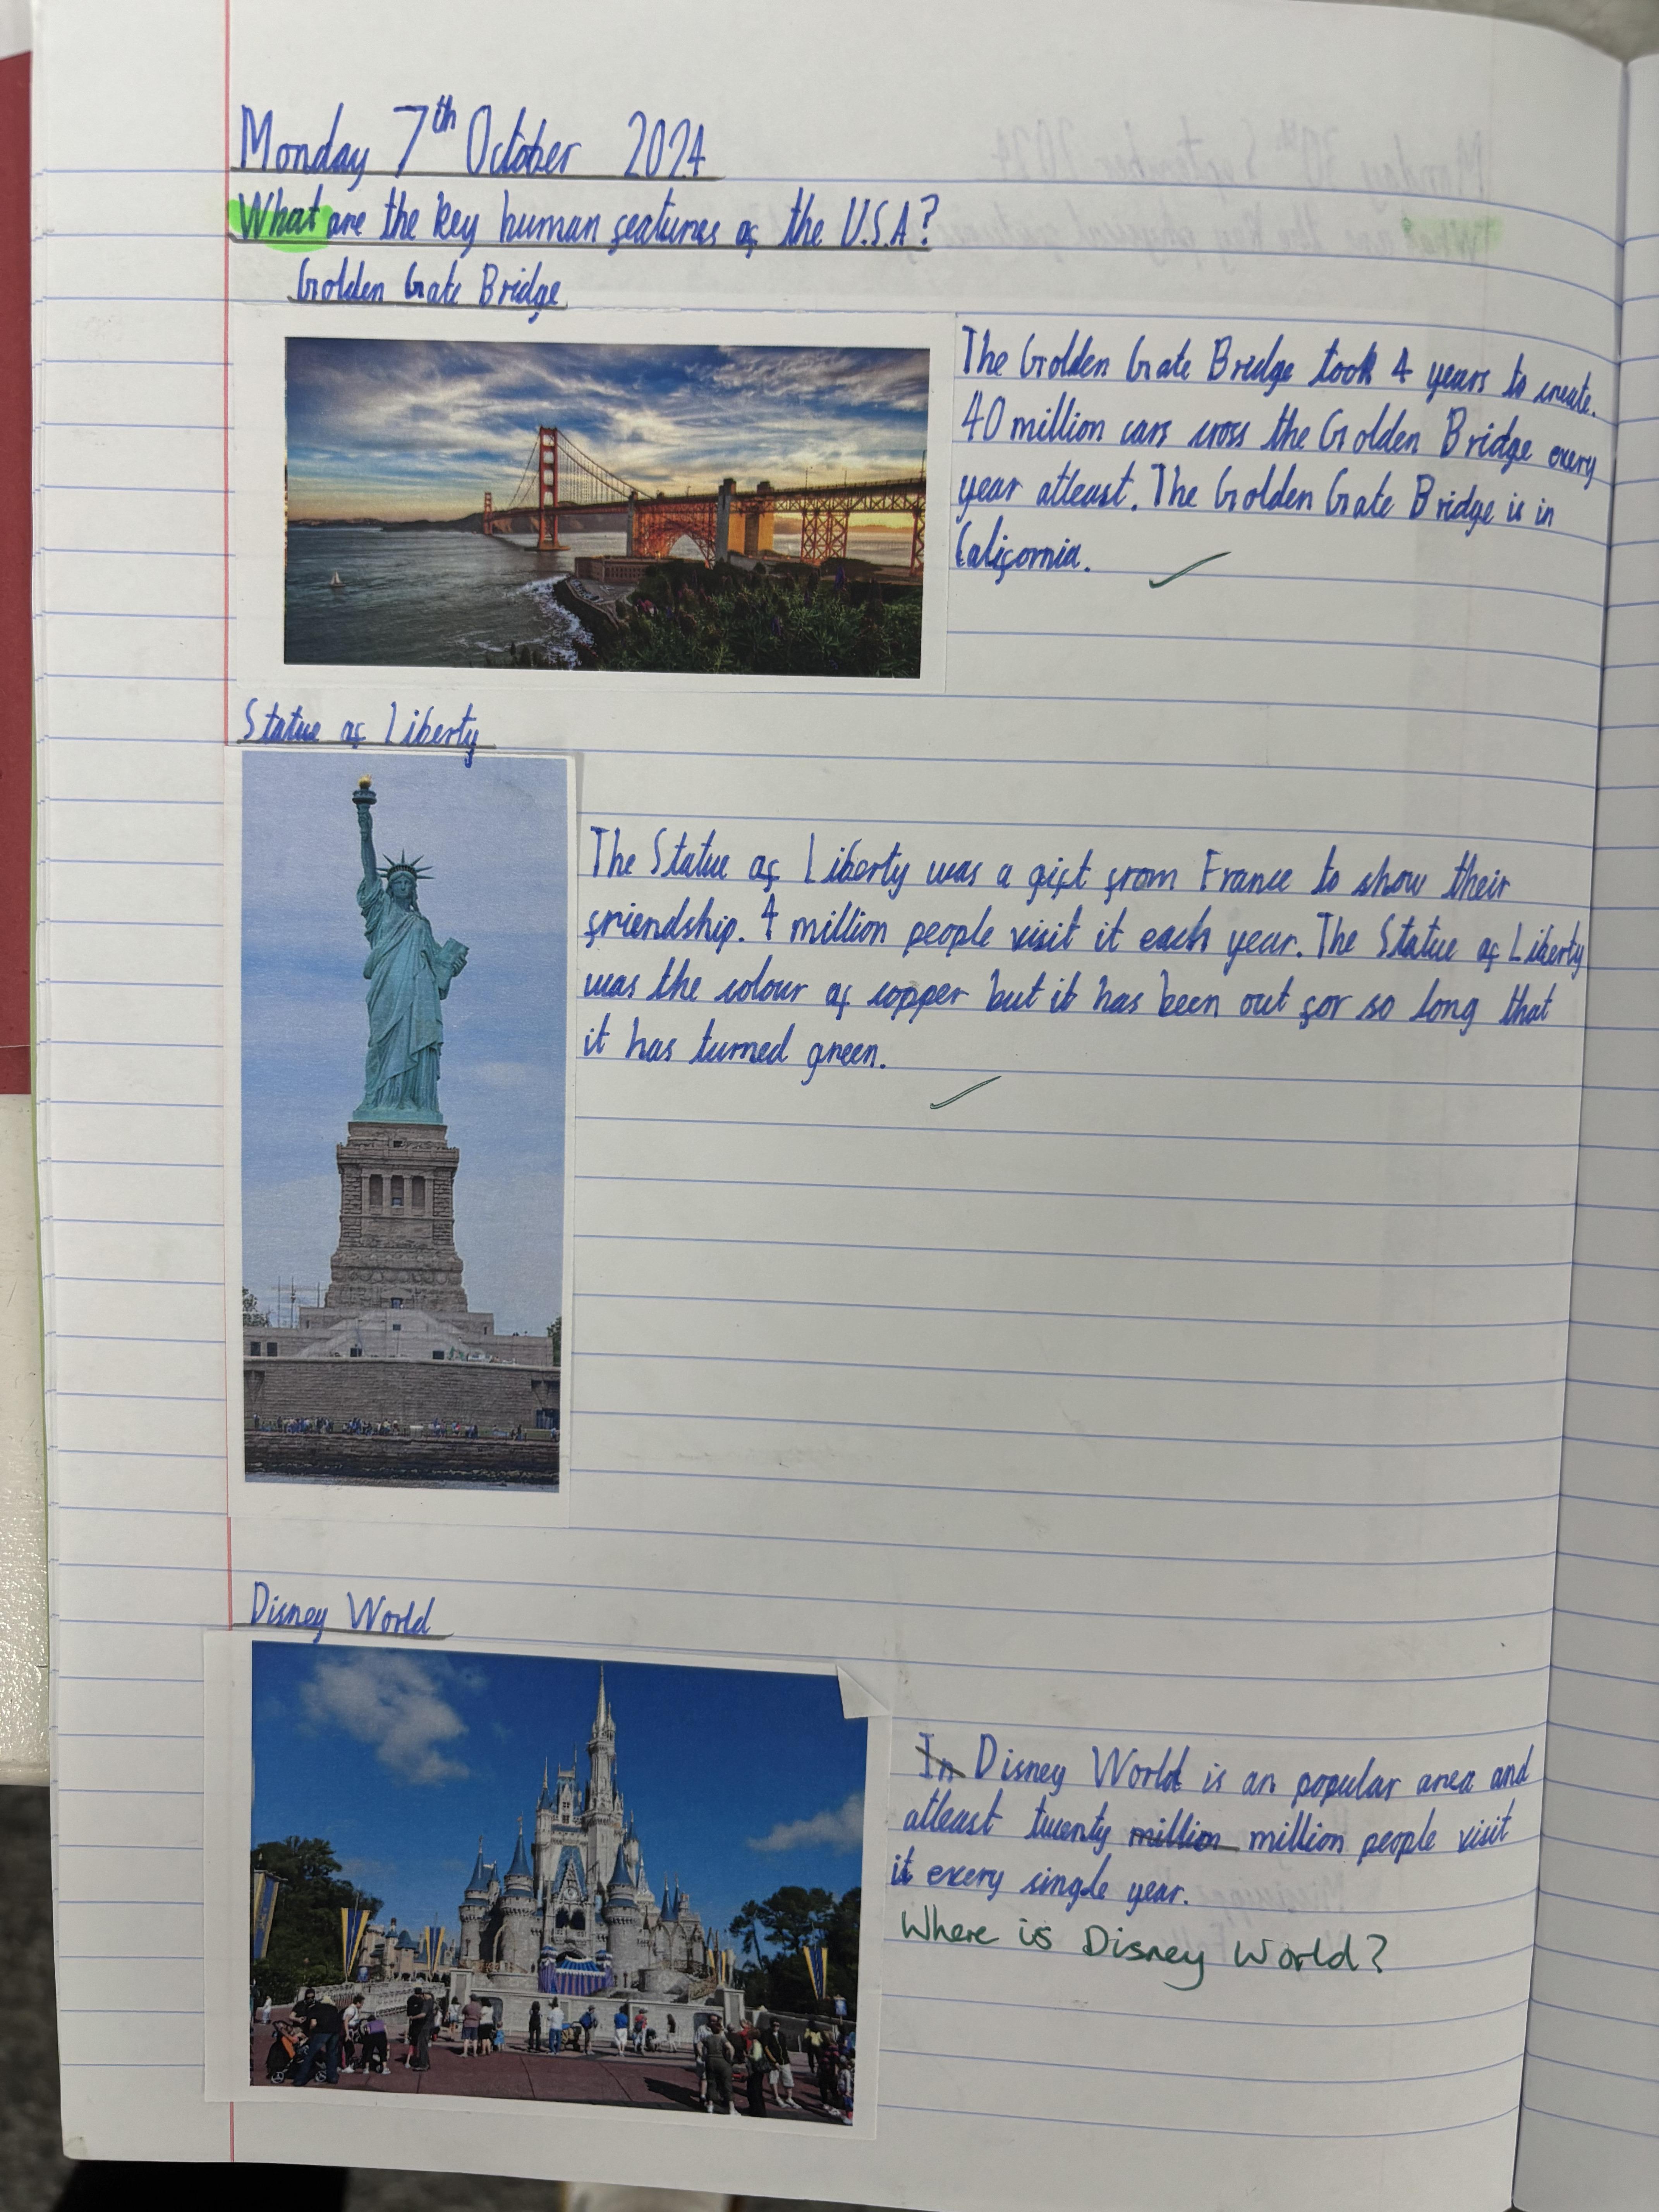 Monday 7th October 2024
What are the key human features of the U.S.A?
Golden Gate Bridge
The Golden Gate Bridge took 4 years to create.
40 million cars cross the Golden Bridge every
year atleast. The Golden Gate Bridge is in
California.
Statue of Liberty
The Statue of Liberty was a gift from France to show their
friendship. 4 million people visit it each year. The Statue of Liberty
was the colour of copper but it has been out for so long that
it has turned green.
Disney World
In Disney World is an popular area and
atleast twenty million million people visit
it every single year.
Where is Disney World?